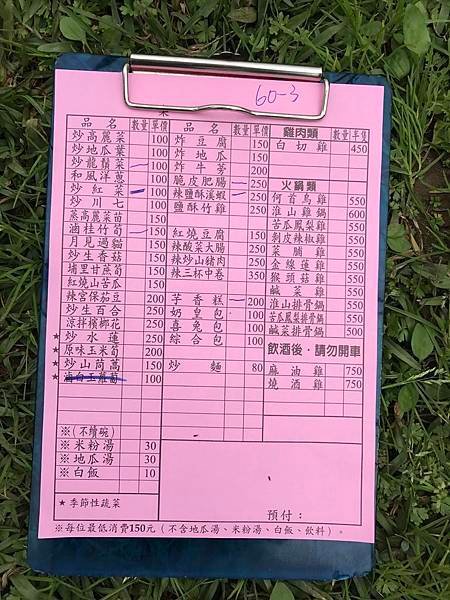 60-3
品名 數量 單價
炒高麗菜 100
炒地瓜葉 100
炒龍鬚菜 100
和風洋蔥 100
炒紅菜 100
炒川七 100
蒸高麗菜苗 150
滷桂竹筍 150
月見過貓 150
炒生香菇 150
埔里甘蔗筍 150
紅燒山苦瓜 150
辣宮保茄豆 200
炒生百合 250
涼拌檳榔花 250
★炒水蓮 250
★原味玉米筍 200
★炒山茼蒿 150
★滷白玉蘿蔔 100
※(不續碗)
※米粉湯 30
※地瓜湯 30
※白飯 10
★季節性蔬菜
品名 數量 單價
炸豆腐 150
炸地瓜 150
炸牛蒡 200
脆皮肥腸 250
辣鹽酥溪蝦 250
鹽酥竹雞 250
紅燒豆腐 150
辣酸菜大腸 250
辣炒山豬肉 250
辣三杯中卷 350
芋香糕 200
奶皇包 100
喜兔包 100
綜合包 100
炒麵 80
雞肉類 數量 單價
白切雞 450
火鍋類
何首烏雞 550
淮山雞鍋 600
苦瓜鳳梨雞 550
剝皮辣椒雞 550
菜脯雞 550
金線蓮雞 550
猴頭菇雞 550
鹹菜雞 550
淮山排骨鍋 550
苦瓜鳳梨排骨鍋 500
鹹菜排骨鍋 500
飲酒後‧請勿開車
麻油雞 750
燒酒雞 750
預付：
※每位最低消費150元（不含地瓜湯、米粉湯、白飯、飲料）。